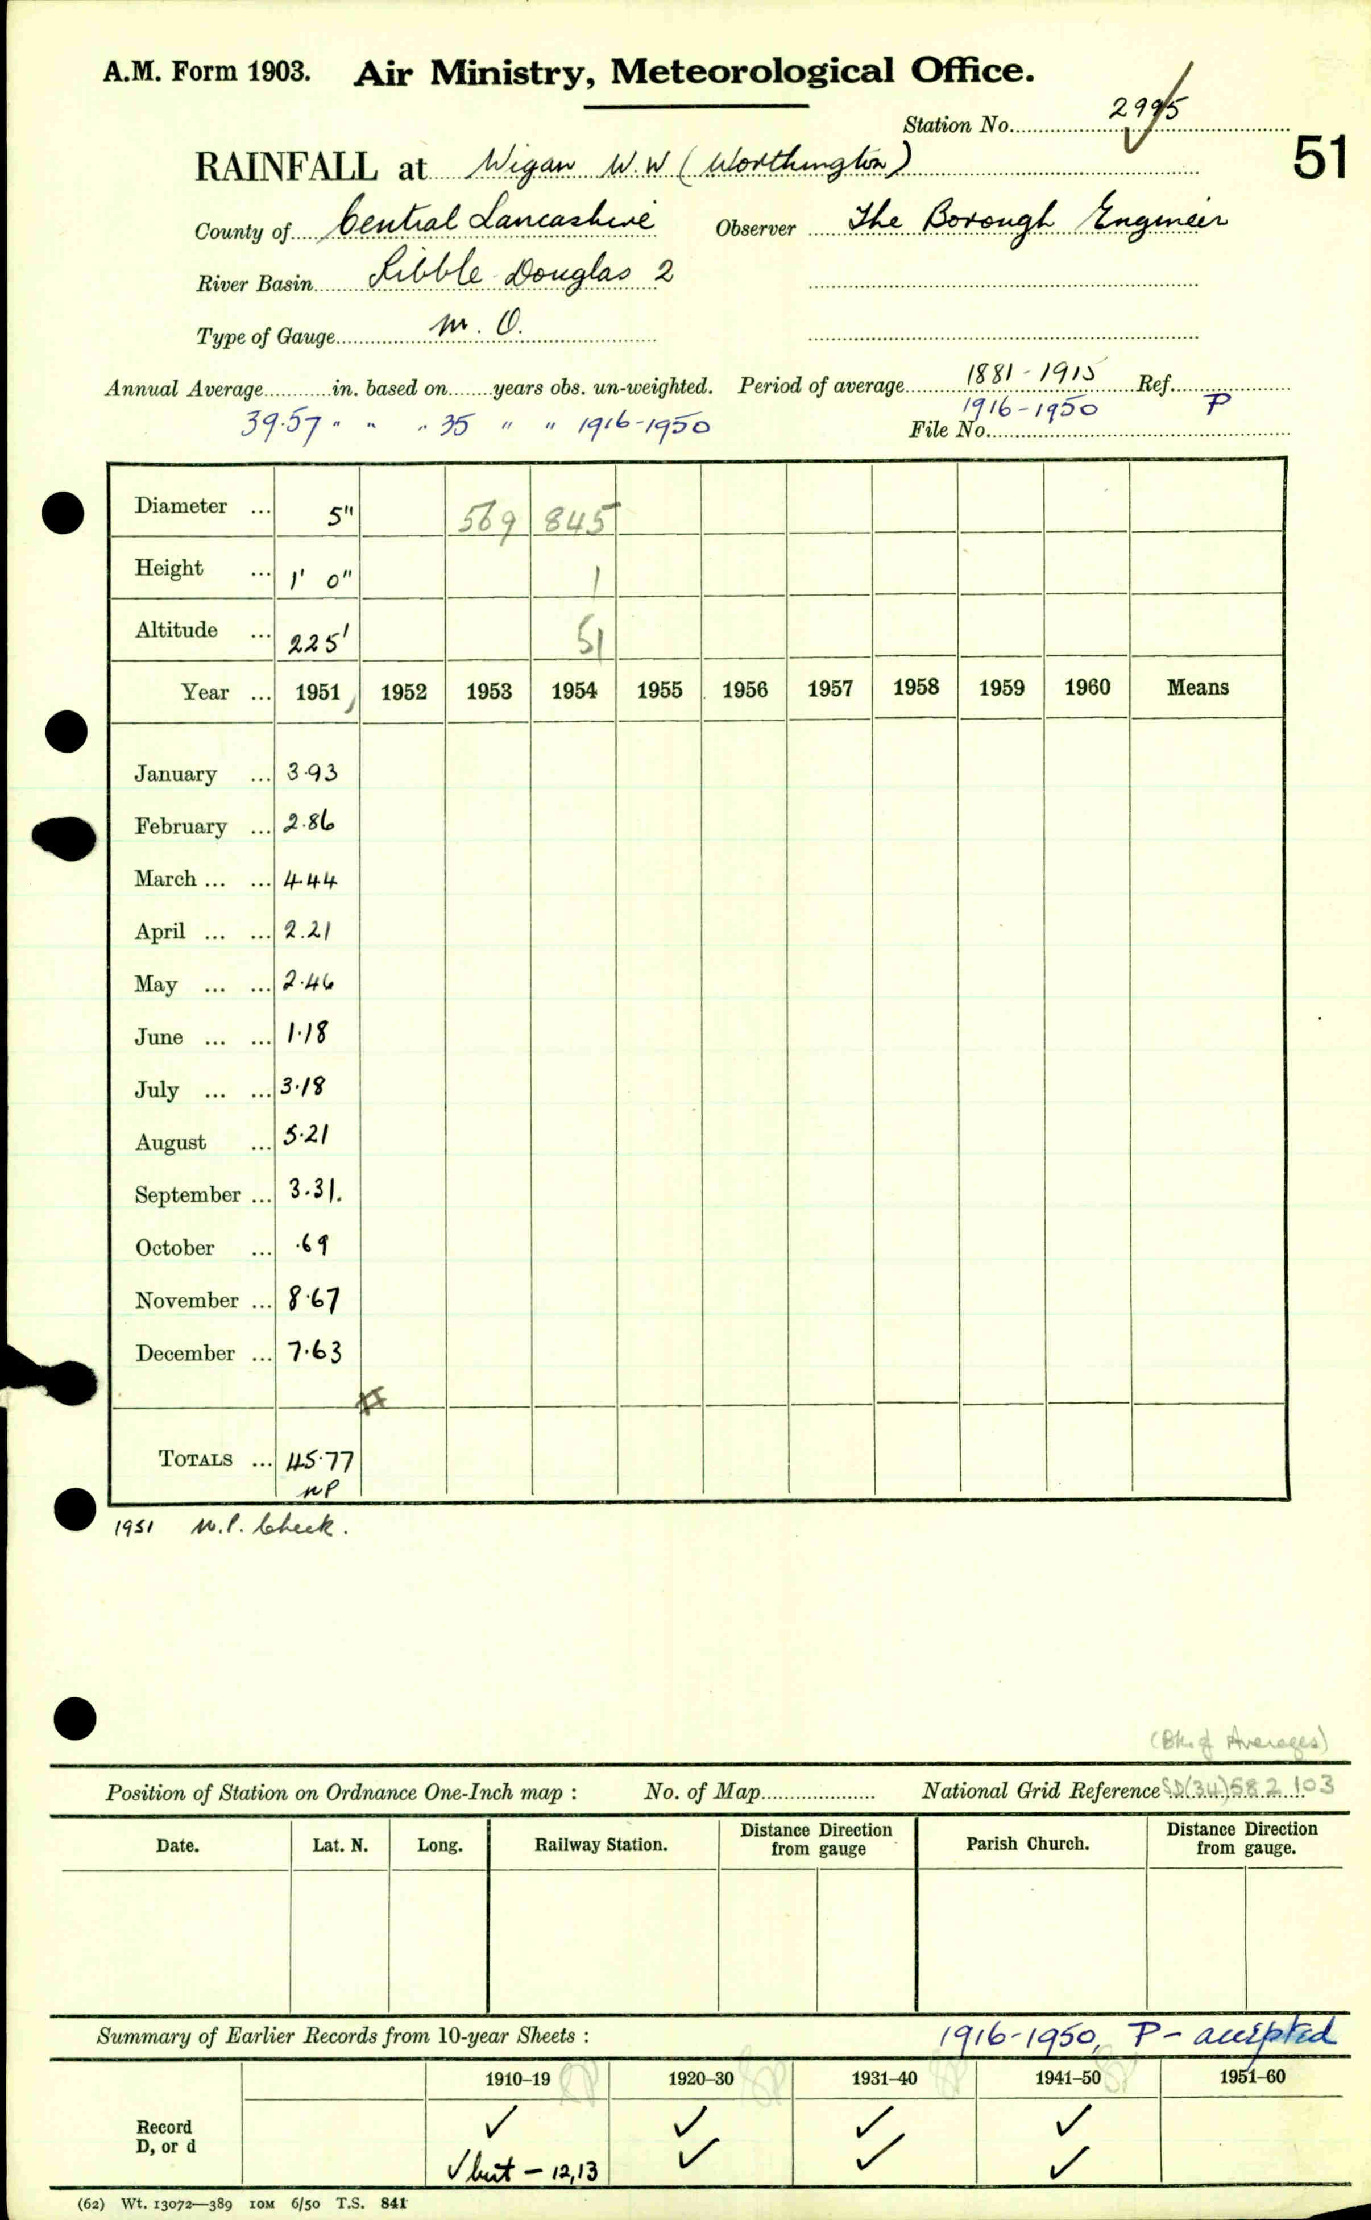 A.M. Form 1903. Air Ministry, Meteorological Office.
Station No. 2995
51
RAINFALL at Wigan W.W (Worthington)
County of Central Lancashire Observer The Borough Engineer
River Basin Ribble Douglas 2
Type of Gauge M.O.
Annual Average in. based on years obs. un-weighted. Period of average 1881-1915 Ref.
39.57 " " " 35 " " 1916-1950 1916-1950 P
File No.
Diameter ... 5" 569 845
Height ... 1' 0" 1
Altitude ... 225' 51
Year ... 1951 1952 1953 1954 1955 1956 1957 1958 1959 1960 Means
January ... 3.93
February ... 2.86
March ... ... 4.44
April ... ... 2.21
May ... ... 2.46
June ... ... 1.18
July ... ... 3.18
August ... 5.21
September ... 3.31.
October ... .69
November ... 8.67
December ... 7.63
TOTALS ... 45.77
NP
1951 N.P. Check.
(Bk of Averages)
Position of Station on Ordnance One-Inch map : No. of Map National Grid Reference SD(34)582103
Date. Lat. N. Long. Railway Station. Distance Direction from gauge Parish Church. Distance Direction from gauge.
Summary of Earlier Records from 10-year Sheets : 1916-1950, P - accepted
1910–19 1920–30 1931–40 1941–50 1951–60
Record ✓ ✓ ✓ ✓
D, or d ✓ but - 12,13 ✓ ✓ ✓
(62) Wt. 13072—389 10M 6/50 T.S. 841